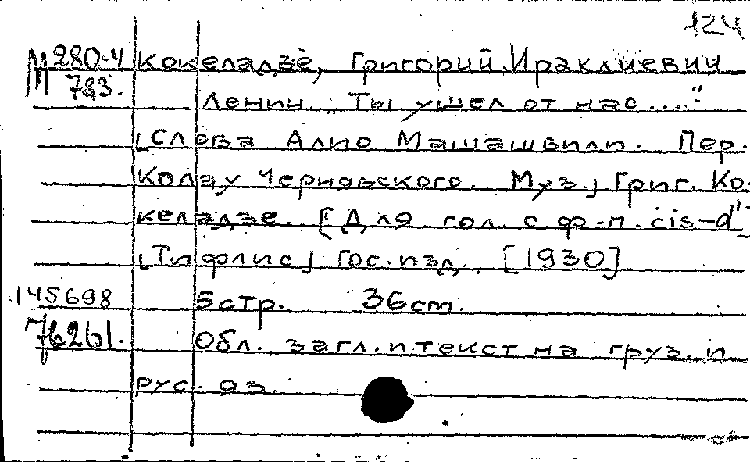 124
М 280-4 Кокеладзе, Григорий Ираклиевич
783. Ленин. "Ты ушел от нас...."
[Слова Алио Машашвили. Пер.
Колау Чернявского. Муз.] Григ. Ко-
келадзе. [Для гол. с ф-п. cis-d"]
[Тифлис] Гос. изд. [1930]
145698 5 стр. 36 cm.
Обл. загл. и текст на груз. и
рус. яз.